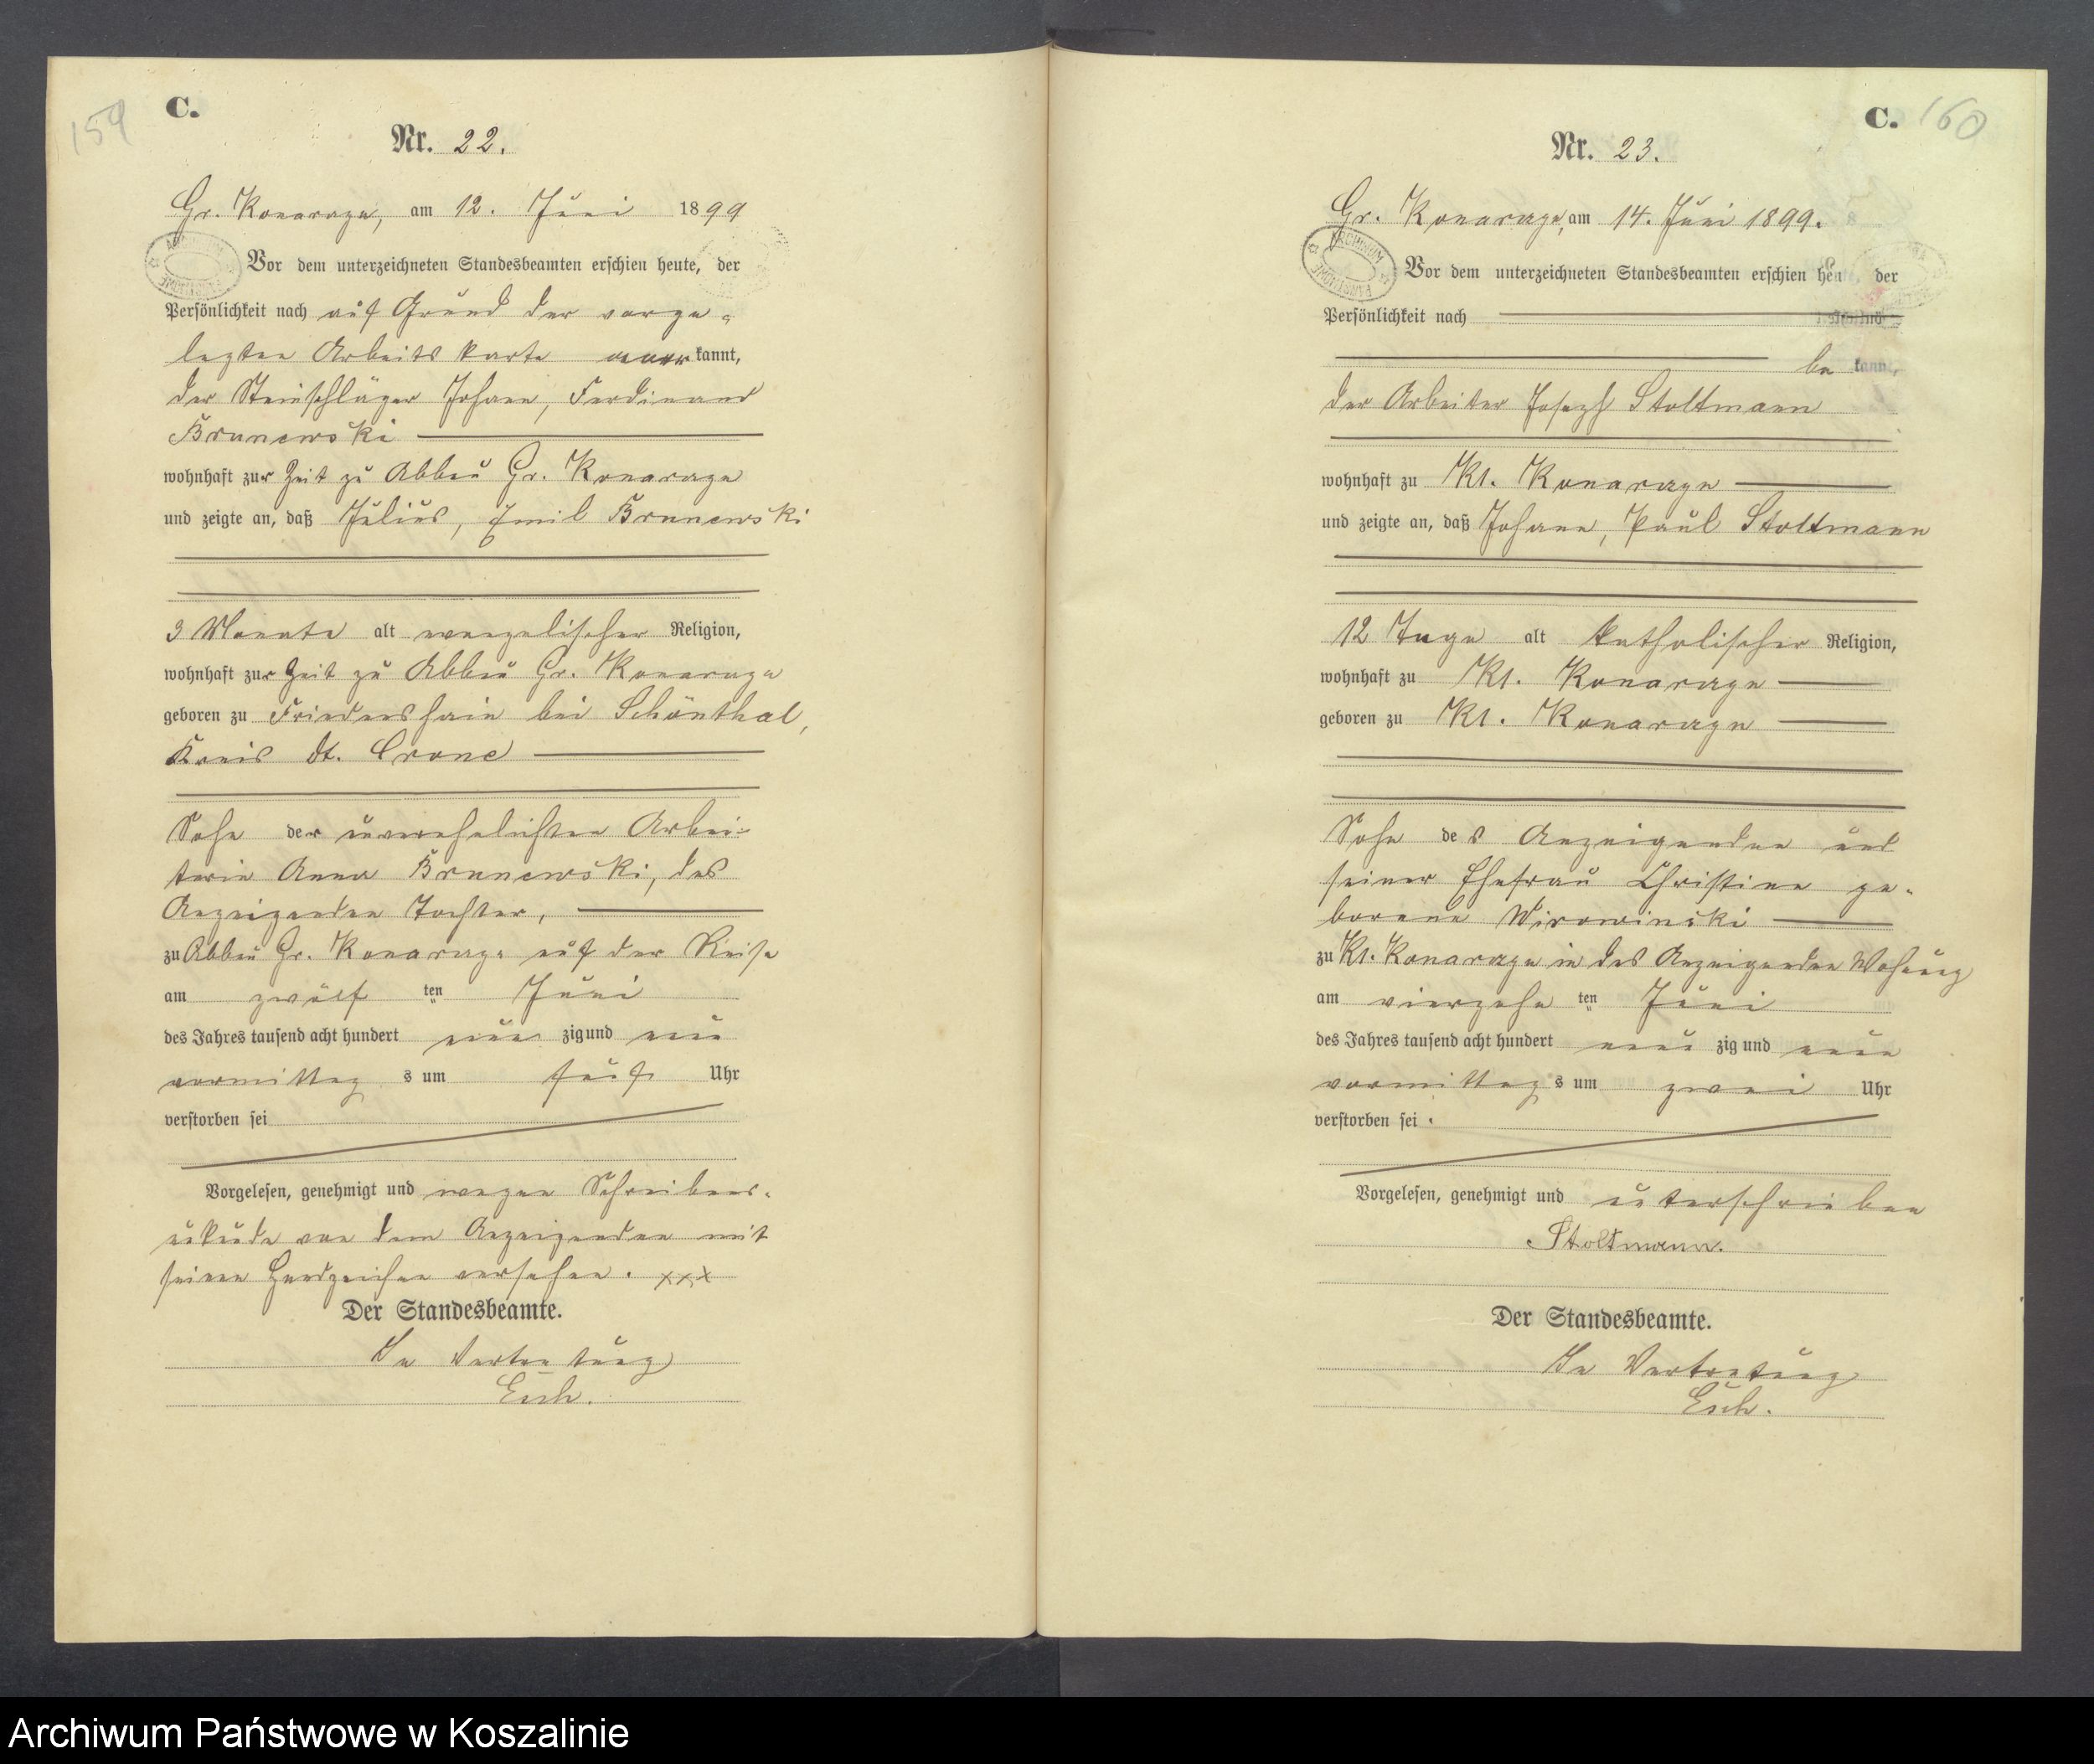 159
C.
Nr. 22.
Gr. Konarzyn, am 12. Juni 1899
ARCHIWUM PAŃSTWOWE
Vor dem unterzeichneten Standesbeamten erschien heute, der
Persönlichkeit nach auf Grund der vorge-
legten Arbeitskarte anerkannt,
der Steinschläger Johann, Ferdinand
Brunewski
wohnhaft zur Zeit zu Abbau Gr. Konarzyn
und zeigte an, daß Julius, Emil Brunewski
3 Monate alt evangelischer Religion,
wohnhaft zur Zeit zu Abbau Gr. Konarzyn
geboren zu Friedenshain bei Schönthal,
Kreis Dt. Crone
Sohn der unverehelichten Arbei-
terin Anna Brunewski, des
Anzeigenden Tochter,
zu Abbau Gr. Konarzyn auf der Reise
am zwölf ten Juni
des Jahres tausend acht hundert neun zig und neun
vormittag s um fünf Uhr
verstorben sei
Vorgelesen, genehmigt und wegen Schreibens-
unkunde von dem Anzeigenden mit
seinen Handzeichen versehen. xxx
Der Standesbeamte.
In Vertretung
Esch.
C. 160
Nr. 23.
Gr. Konarzyn, am 14. Juni 1899.
ARCHIWUM PAŃSTWOWE
Vor dem unterzeichneten Standesbeamten erschien heute, der
Persönlichkeit nach
be kannt,
der Arbeiter Joseph Stoltmann
wohnhaft zu Kl. Konarzyn
und zeigte an, daß Johann, Paul Stoltmann
12 Tage alt katholischer Religion,
wohnhaft zu Kl. Konarzyn
geboren zu Kl. Konarzyn
Sohn des Anzeigenden und
seiner Ehefrau Christine ge-
borene Wirowinski
zu Kl. Konarzyn in des Anzeigenden Wohnung
am vierzehn ten Juni
des Jahres tausend acht hundert neun zig und neun
vormittag s um zwei Uhr
verstorben sei.
Vorgelesen, genehmigt und unterschrieben
Stoltmann.
Der Standesbeamte.
In Vertretung
Esch.
Archiwum Państwowe w Koszalinie